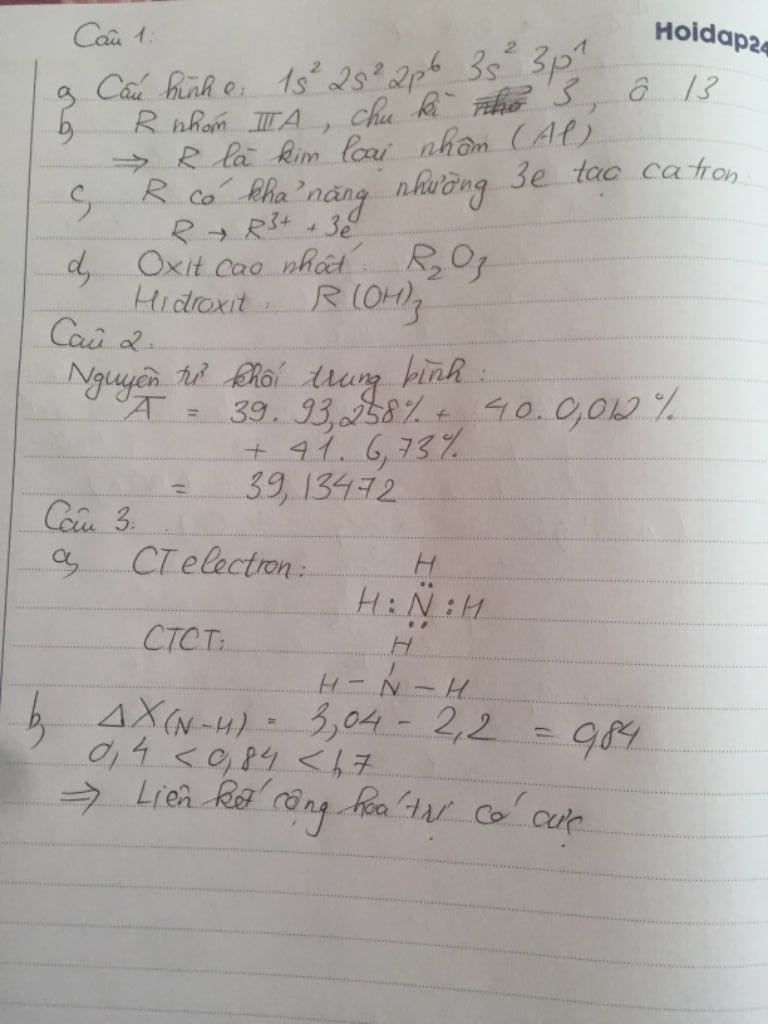 Hoidap24
Câu 1:
a, Cấu hình e: 1s² 2s² 2p⁶ 3s² 3p¹
b, R nhóm IIIA, chu kì 3, ô 13
⇒ R là kim loại nhôm (Al)
c, R có khả năng nhường 3e tạo catron.
R → R³⁺ + 3e
d, Oxit cao nhất: R₂O₃
Hidroxit: R(OH)₃
Câu 2.
Nguyên tử khối trung bình:
A̅ = 39. 93,258% + 40. 0,012%
+ 41. 6,73%
= 39,13472
Câu 3.
a, CT electron: H
H : N : H
CTCT: H
H - N - H
b, ΔX(N-H) = 3,04 - 2,2 = 0,84
0,4 < 0,84 < 1,7
⇒ Liên kết cộng hoá trị có cực